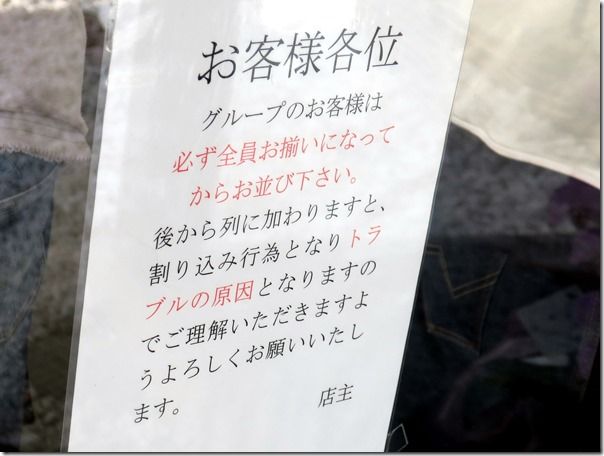 お客様各位
グループのお客様は
必ず全員お揃いになって
からお並び下さい。
後から列に加わりますと、
割り込み行為となりトラ
ブルの原因となりますの
でご理解いただきますよ
うよろしくお願いいたし
ます。
店主